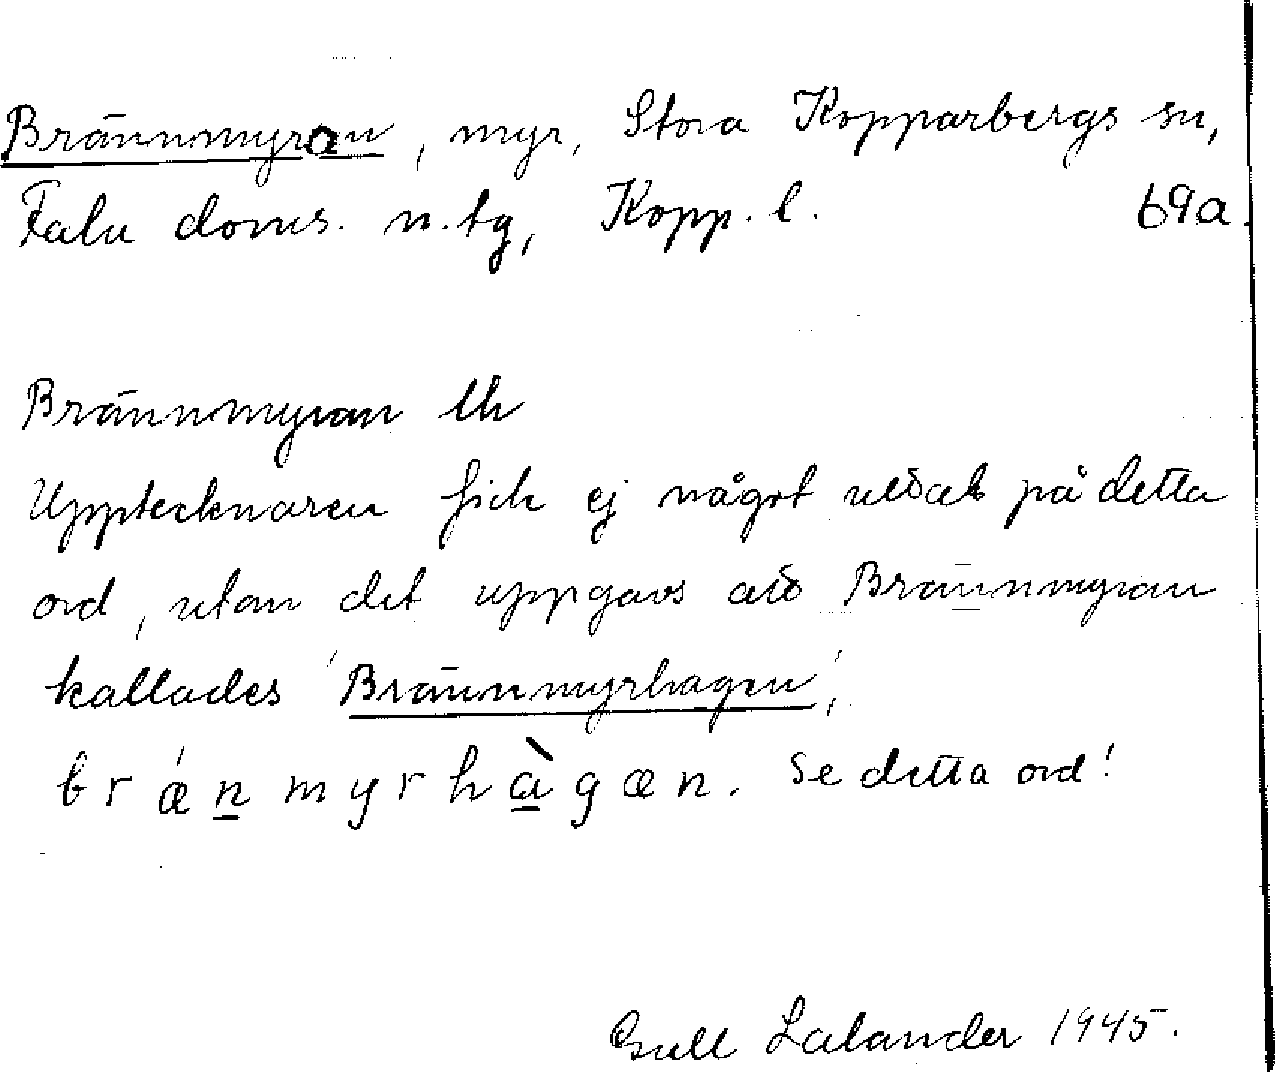 Brännmyran, myr, Stora Kopparbergs sn,
Falu doms. n. tg, Kopp. l. 69a.
Brännmyran Uk
Upptecknaren fick ej något uttal på detta
ord, utan det uppgavs att Brännmyran
kallades 'Brännmyrhagen',
brǽnmyrhàgæn. Se detta ord!
Gull Lalander 1945.